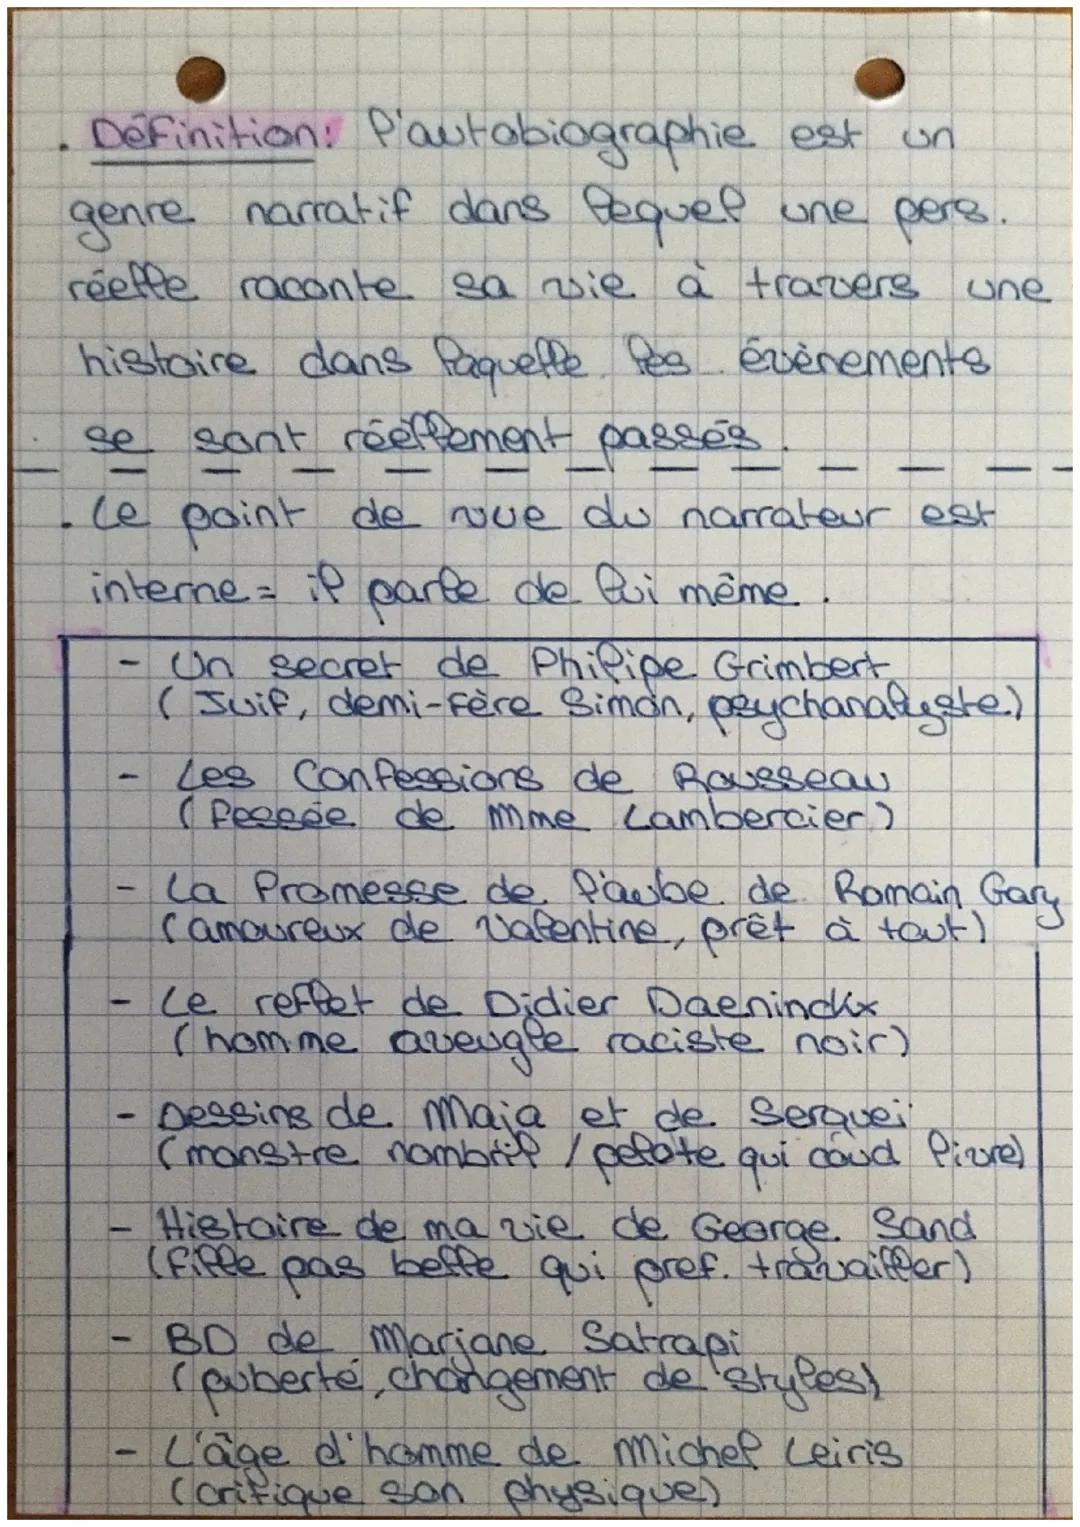 . Définition: l'autobiographie est un
genre narratif dans lequel une pers.
réelle raconte sa vie à travers une
histoire dans laquelle les évènements
se sont réellement passés.
. Le point de vue du narrateur est
interne = il parle de lui même.
- Un secret de Philipe Grimbert
(Juif, demi-fère Simon, psychanalyste.)
- Les Confessions de Rousseau
(fessée de Mme Lambercier)
- La Promesse de l'aube de Romain Gary
(amoureux de Valentine, prêt à tout)
- Le reflet de Didier Daeninckx
(homme aveugle raciste noir)
- Dessins de Maja et de Serguei
(monstre nombril / pelote qui coud livre)
- Histoire de ma vie de George Sand
(fille pas belle qui pref. travailler)
- BD de Marjane Satrapi
(puberté, changement de styles)
- L'âge d'homme de Michel Leiris
(critique son physique)